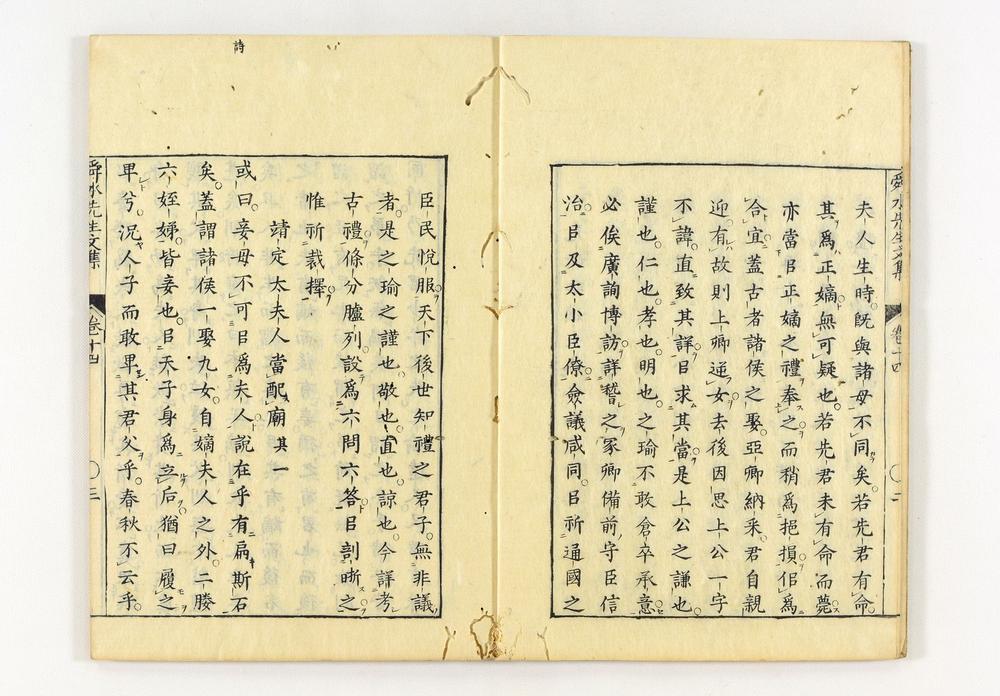 舜水先生文集
卷十四
二
夫人生時旣與諸母不同矣若先君有命
其爲正嫡無可疑也若先君未有命而薨
亦當㠯正嫡之禮奉之而稍爲挹損佀爲
合宜蓋古者諸侯之娶亞卿納采君自親
迎有故則上卿逆女去後因思上公一字
不諱直致其詳㠯求其當是上公之謙也
謹也仁也孝也明也之瑜不敢倉卒承意
必俟廣詢博訪詳
之冢卿備前守臣信
治㠯及太小臣僚僉議咸同㠯祈通國之
臣民悅服天下後世知禮之君子無非議
者是之瑜之謹也敬也直也諒也今詳考
古禮條分臚列設爲六問六答㠯剖晰之
惟祈裁擇
靖定太夫人當配廟其一
或曰妾母不可㠯爲夫人說在乎有扁斯石
矣蓋謂諸侯一娶九女自嫡夫人之外二媵
六姪娣皆妾也㠯天子身爲立后猶曰履之
卑兮況人子而敢卑其君父乎春秋不云乎
詩
舜水先生文集
卷十四
三